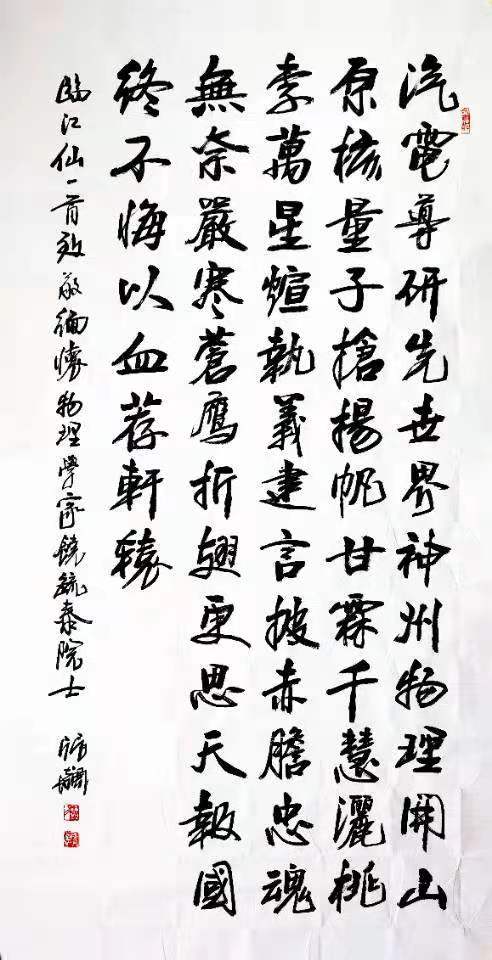 汽電導研先世界神州物理開山
原核量子搶揚帆甘霖千慧灑桃
李萬星煊執義建言披赤膽忠魂
無奈嚴寒蒼鷹折翅更思天報國
終不悔以血荐軒轅
臨江仙一首致敬緬懷物理學家饒毓泰院士